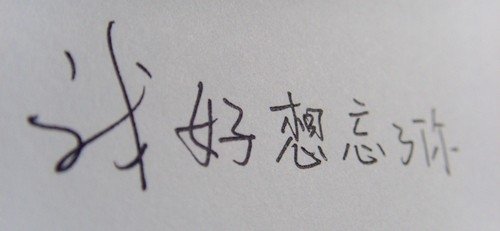 我好想忘了你